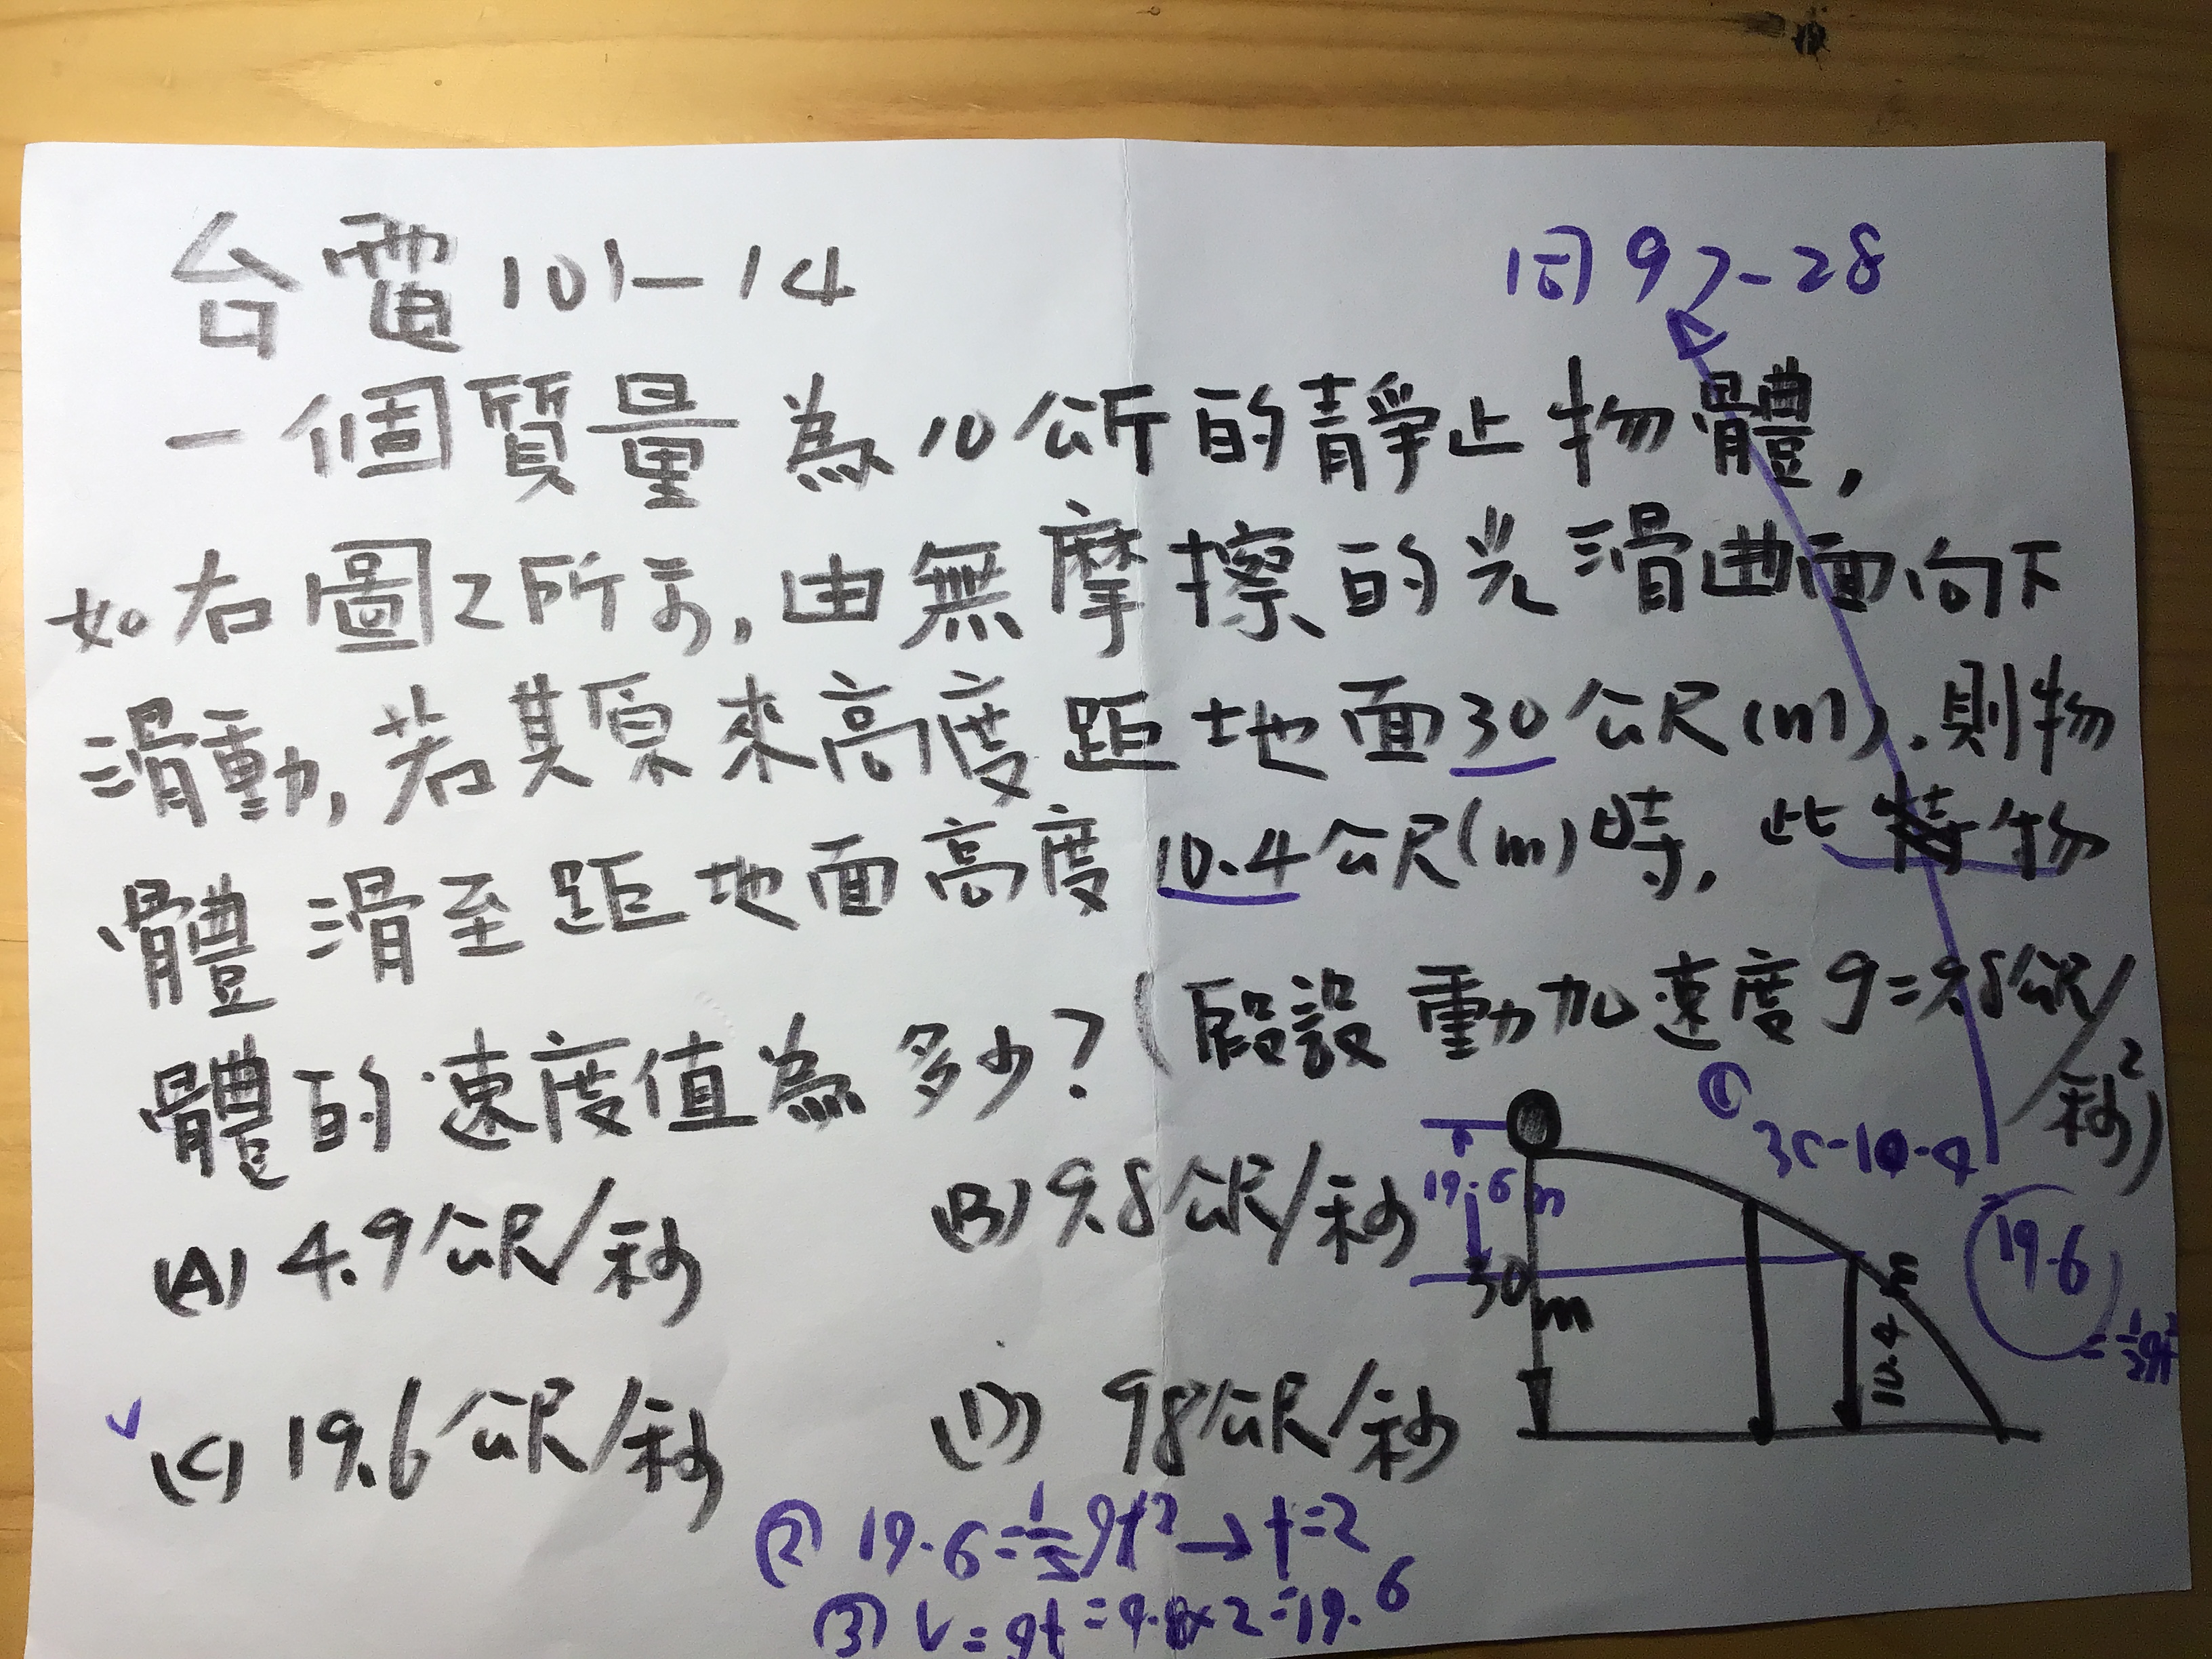 台電101-14
同97-28
一個質量為10公斤的靜止物體,
如右圖2所示,由無摩擦的光滑曲面向下
滑動,若其原來高度距地面30公尺(m),則物
體滑至距地面高度10.4公尺(m)時,此物
體的速度值為多少?(假設重力加速度g=9.8公尺/秒²)
(A) 4.9公尺/秒
(B) 9.8公尺/秒
(C) 19.6公尺/秒
(D) 98公尺/秒
① 30-10.4
19.6
=½gt²
19.6m
30m
10.4m
(2) 19.6=½gt²→t=2
(3) v=gt=9.8×2=19.6